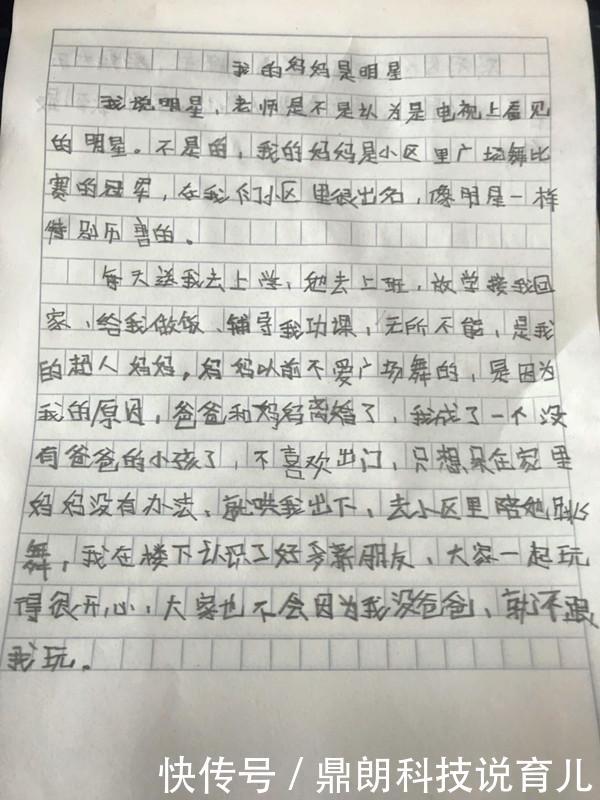 我的妈妈是明星
我说明星，老师是不是认为是电视上看见
的明星。不是的，我的妈妈是小区里广场舞比
赛的冠军，在我们小区里很出名，像明星一样
特别历害的。
每天送我去上学，她去上班，放学接我回
家、给我做饭、辅导我功课，无所不能，是我
的超人妈妈，妈妈以前不爱广场舞的，是因为
我的原因，爸爸和妈妈离婚了，我成了一个没
有爸爸的小孩了，不喜欢出门，只想呆在家里
妈妈没有办法、就哄我出下，去小区里陪她跳
舞，我在楼下认识了好多新朋友、大家一起玩
得很开心、大家也不会因为我没爸爸、就不跟
我玩。
快传号/鼎朗科技说育儿